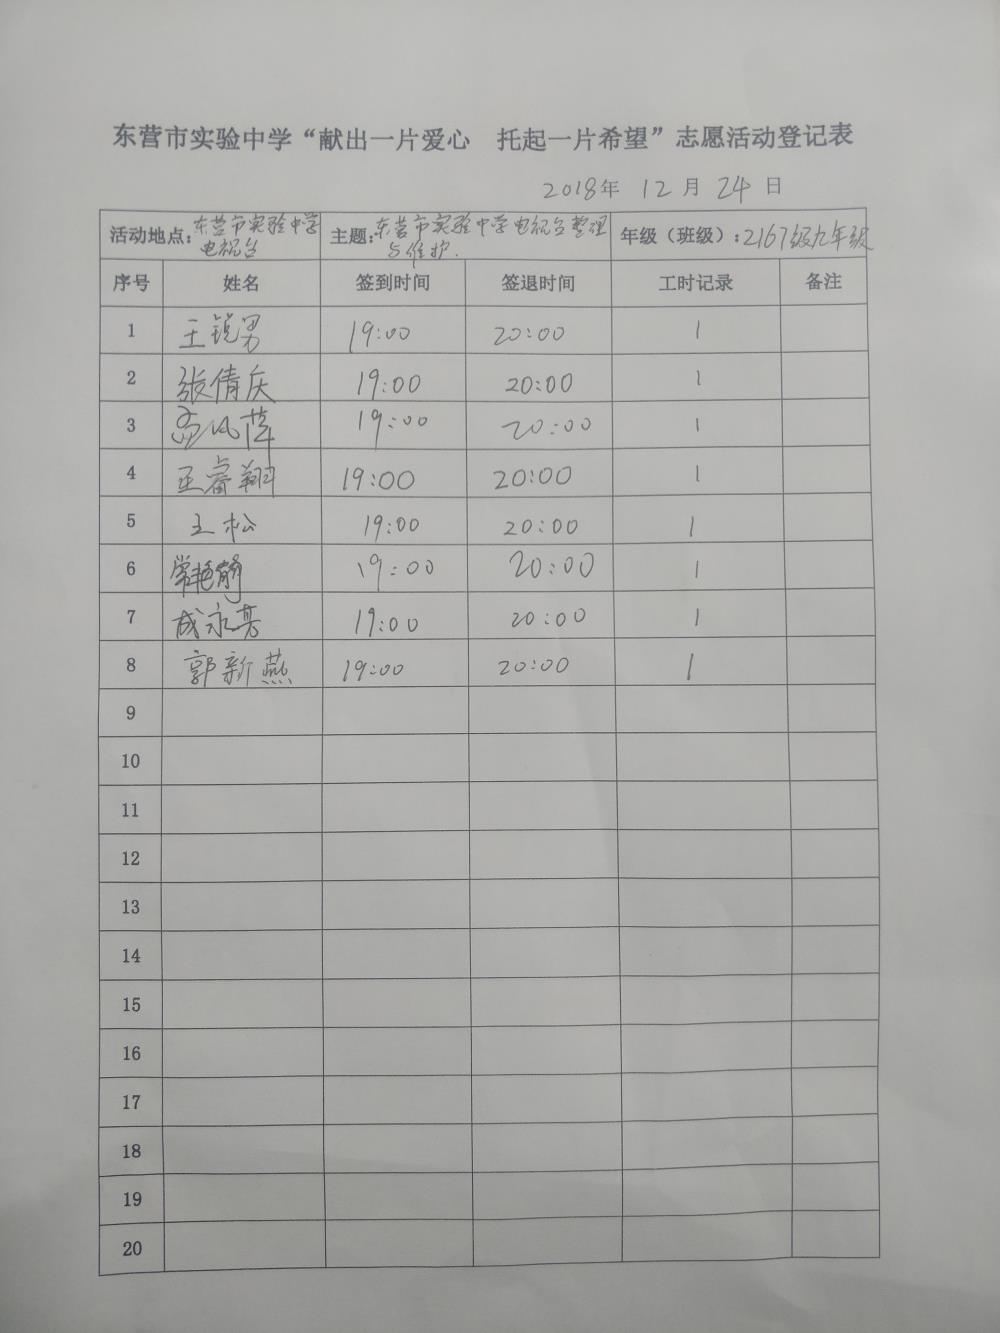 东营市实验中学“献出一片爱心 托起一片希望”志愿活动登记表
2018年 12月 24日
活动地点:东营市实验中学电视台 主题:东营市实验中学电视台整理与维护. 年级（班级）:2167级九年级
序号 姓名 签到时间 签退时间 工时记录 备注
1 王锐男 19:00 20:00 1
2 张倩庆 19:00 20:00 1
3 19:00 20:00 1
4 王睿翔 19:00 20:00 1
5 王松 19:00 20:00 1
6 常艳静 19:00 20:00 1
7 成永亮 19:00 20:00 1
8 郭新燕 19:00 20:00 1
9
10
11
12
13
14
15
16
17
18
19
20